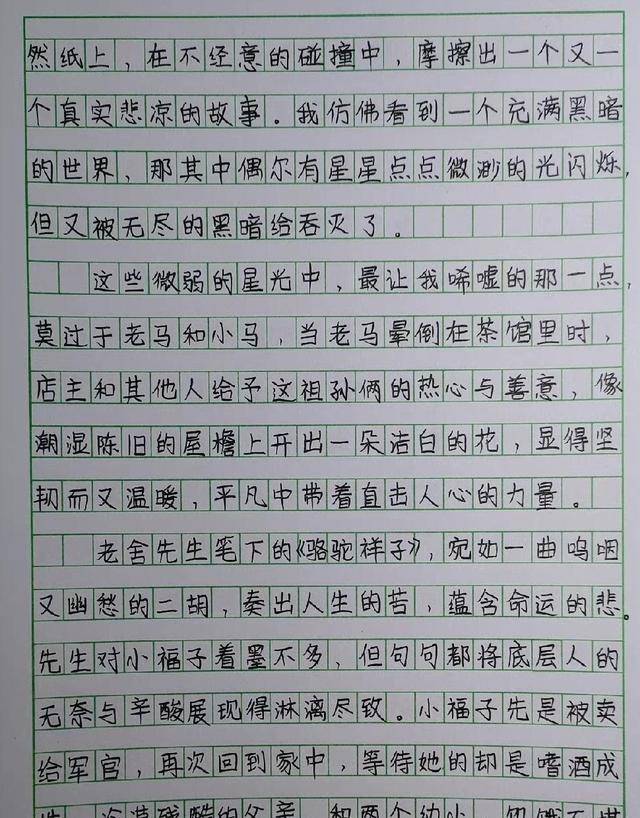 然纸上，在不经意的碰撞中，摩擦出一个又一
个真实悲凉的故事。我仿佛看到一个充满黑暗
的世界，那其中偶尔有星星点点微渺的光闪烁，
但又被无尽的黑暗给吞灭了。
这些微弱的星光中，最让我唏嘘的那一点，
莫过于老马和小马，当老马晕倒在茶馆里时，
店主和其他人给予这祖孙俩的热心与善意，像
潮湿陈旧的屋檐上开出一朵洁白的花，显得坚
韧而又温暖，平凡中带着直击人心的力量。
老舍先生笔下的《骆驼祥子》，宛如一曲呜咽
又幽愁的二胡，奏出人生的苦，蕴含命运的悲。
先生对小福子着墨不多，但句句都将底层人的
无奈与辛酸展现得淋漓尽致。小福子先是被卖
给军官，再次回到家中，等待她的却是嗜酒成
性、冷漠残酷的父亲，和两个幼小、饥饿不堪